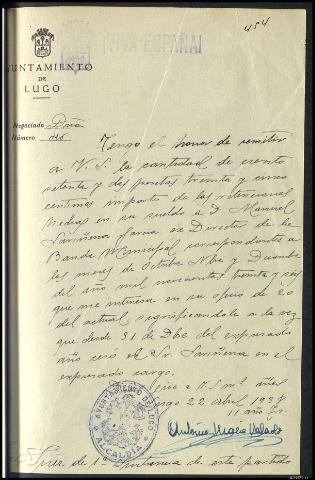 454
¡VIVA ESPAÑA!
AYUNTAMIENTO
DE
LUGO
Negociado
Número
Tengo el honor de remitir
a V. S. la cantidad de ciento
setenta y dos pesetas treinta y cinco
centimos importe de las retenciones
hechas en su sueldo a D. Manuel
Lariñena ex Director de la
Banda Municipal correspondientes a
los meses de Octubre Nbre y Diciembre
del año mil novecientos treinta y seis
que me interesa en su oficio de 20
del actual, significandole a la vez
que desde 31 de Dbe del expresado
año cesó el Sr Lariñena en el
expresado cargo.
Dios a V. S. ms años
Lugo 22 abril 1938
II año
AYUNTAMIENTO DE LUGO
ALCALDIA
Antonio
Juez de 1ª Instancia de este partido